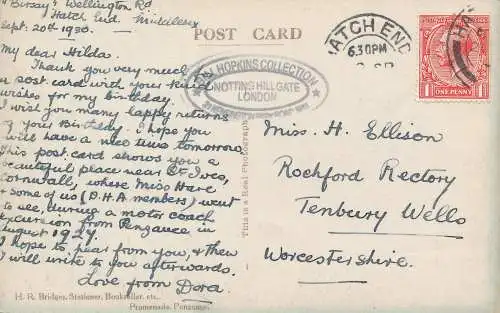 "Birsay" Wellington Rd
Hatch End, Middlesex
Sept. 20th 1930.
My dear Hilda.
Thank you very much
post card with your kind
wishes for my birthday.
I wish you many happy returns
of your Birthday. I hope you
will have a nice time tomorrow.
This post card shows you a
beautiful place near St Ives,
Cornwall, where Miss Hare
& some of us (D.H.A. members) went
to see, during a motor coach
excursion from Penzance in
August 1929.
I hope to hear from you, & then
I will write to you afterwards.
Love from Dora.
H. R. Bridger, Stationer, Bookseller, etc.,
Promenade, Penzance.
POST CARD
HOPKINS COLLECTION
NOTTING HILL GATE
LONDON
This is a Real Photograph
HATCH END
6.30PM
HA
ONE PENNY
1 1
Miss. H. Ellison
Rochford Rectory
Tenbury Wells
Worcestershire.